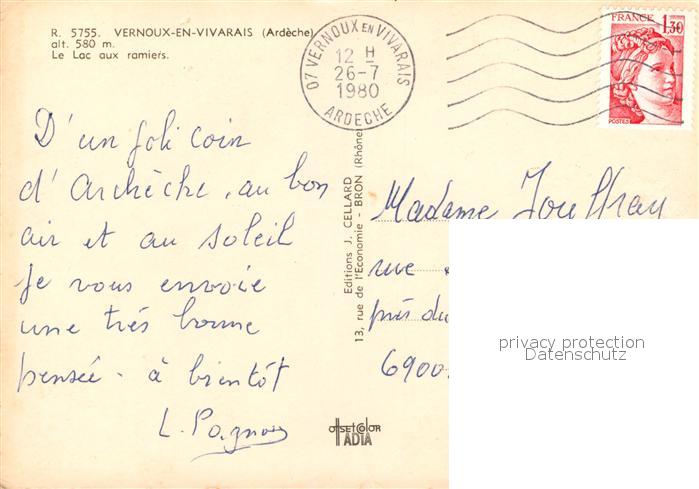 R. 5755. VERNOUX-EN-VIVARAIS (Ardèche)
alt. 580 m.
Le Lac aux ramiers.
07 VERNOUX EN VIVARAIS
12 H
26-7
1980
ARDECHE
FRANCE
1,30
POSTES
D'un joli coin
d'Ardèche, au bon
air et au soleil
Je vous envoie
une très bonne
pensée - à bientôt
Editions J. CELLARD
13, rue de l'Economie - BRON (Rhône)
Madame
rue
près du
6900
privacy protection
Datenschutz
offsetcolor
ADIA